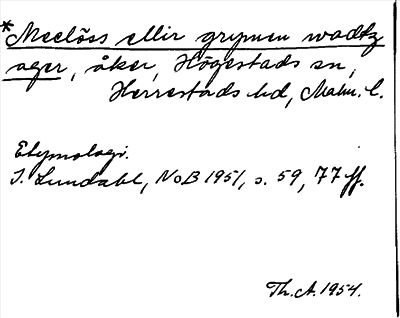 *Meelöss ellir grymen wadtz
ager, åker, Högestads sn,
Herrestads hd, Malm. l.
Etymologi.
I. Lundahl, NoB 1951, s. 59, 77 ff.
Th. A. 1954.